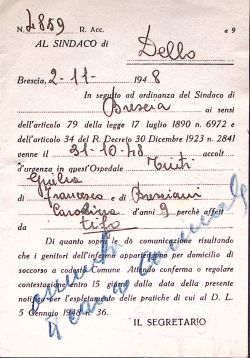 N. 4859 R. Acc. e 9
AL SINDACO di
Dello
Brescia, 2-11- 1948
In seguito ad ordinanza del Sindaco di
Brescia ai sensi
dell'articolo 79 della legge 17 luglio 1890 n. 6972 e
dell'articolo 34 del R. Decreto 30 Dicembre 1923 n. 2841
venne il 31-10-48 accolt
d'urgenza in quest'Ospedale
Giulia
di Francesco e di Bresciani
Carolina d'anni 9 perchè affett
da tifo
Di quanto sopra le dò comunicazione risultando
che i genitori dell'infermo appartengono per domicilio di
soccorso a codesto Comune. Attendo conferma o regolare
contestazione entro 15 giorni dalla data della presente
notifica per l'espletamento delle pratiche di cui al D. L.
5 Gennaio 1948 n. 36.
IL SEGRETARIO